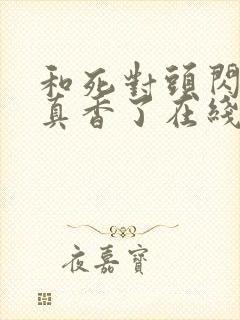 和死對頭閃
真香了在綫
夜嘉寶